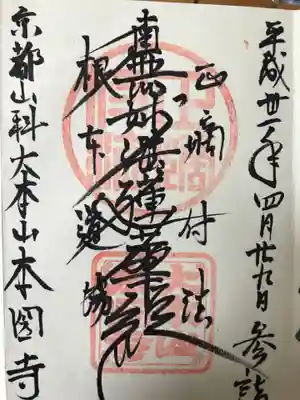 平成卅一年四月廿九日参詣
正嫡付法
南無妙法蓮華経
根本道場
京都山科大本山本圀寺